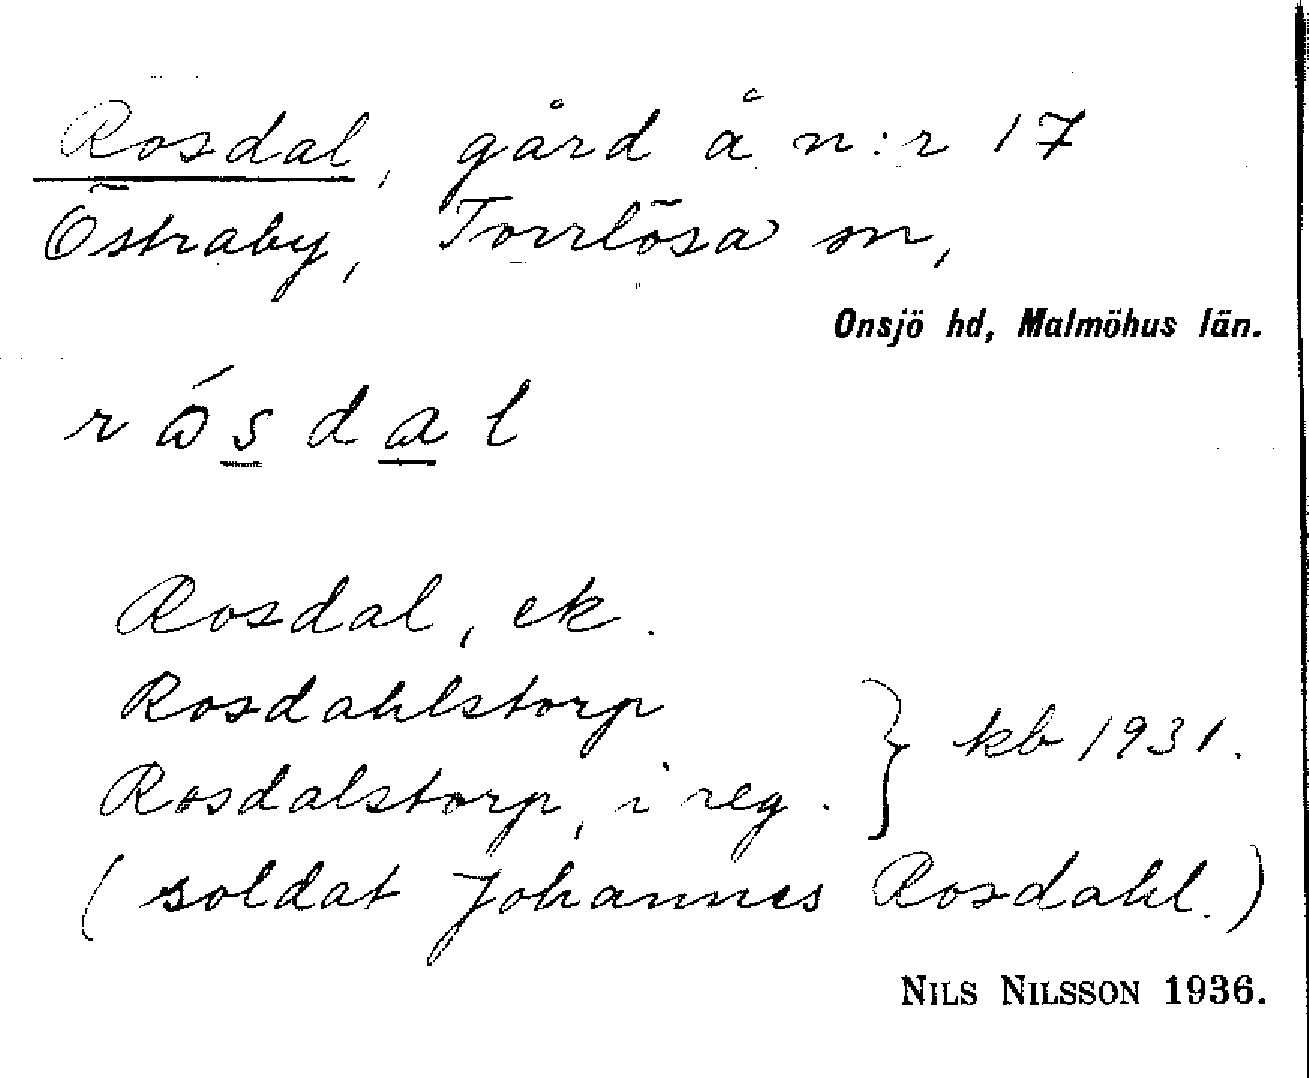 Rosdal, gård å n:r 17
Östraby, Torrlösa sn,
Onsjö hd, Malmöhus län.
Rosdal, ek.
Rosdahlstorp
Rosdalstorp, i reg. } kb 1931.
(soldat Johannes Rosdahl.)
NILS NILSSON 1936.